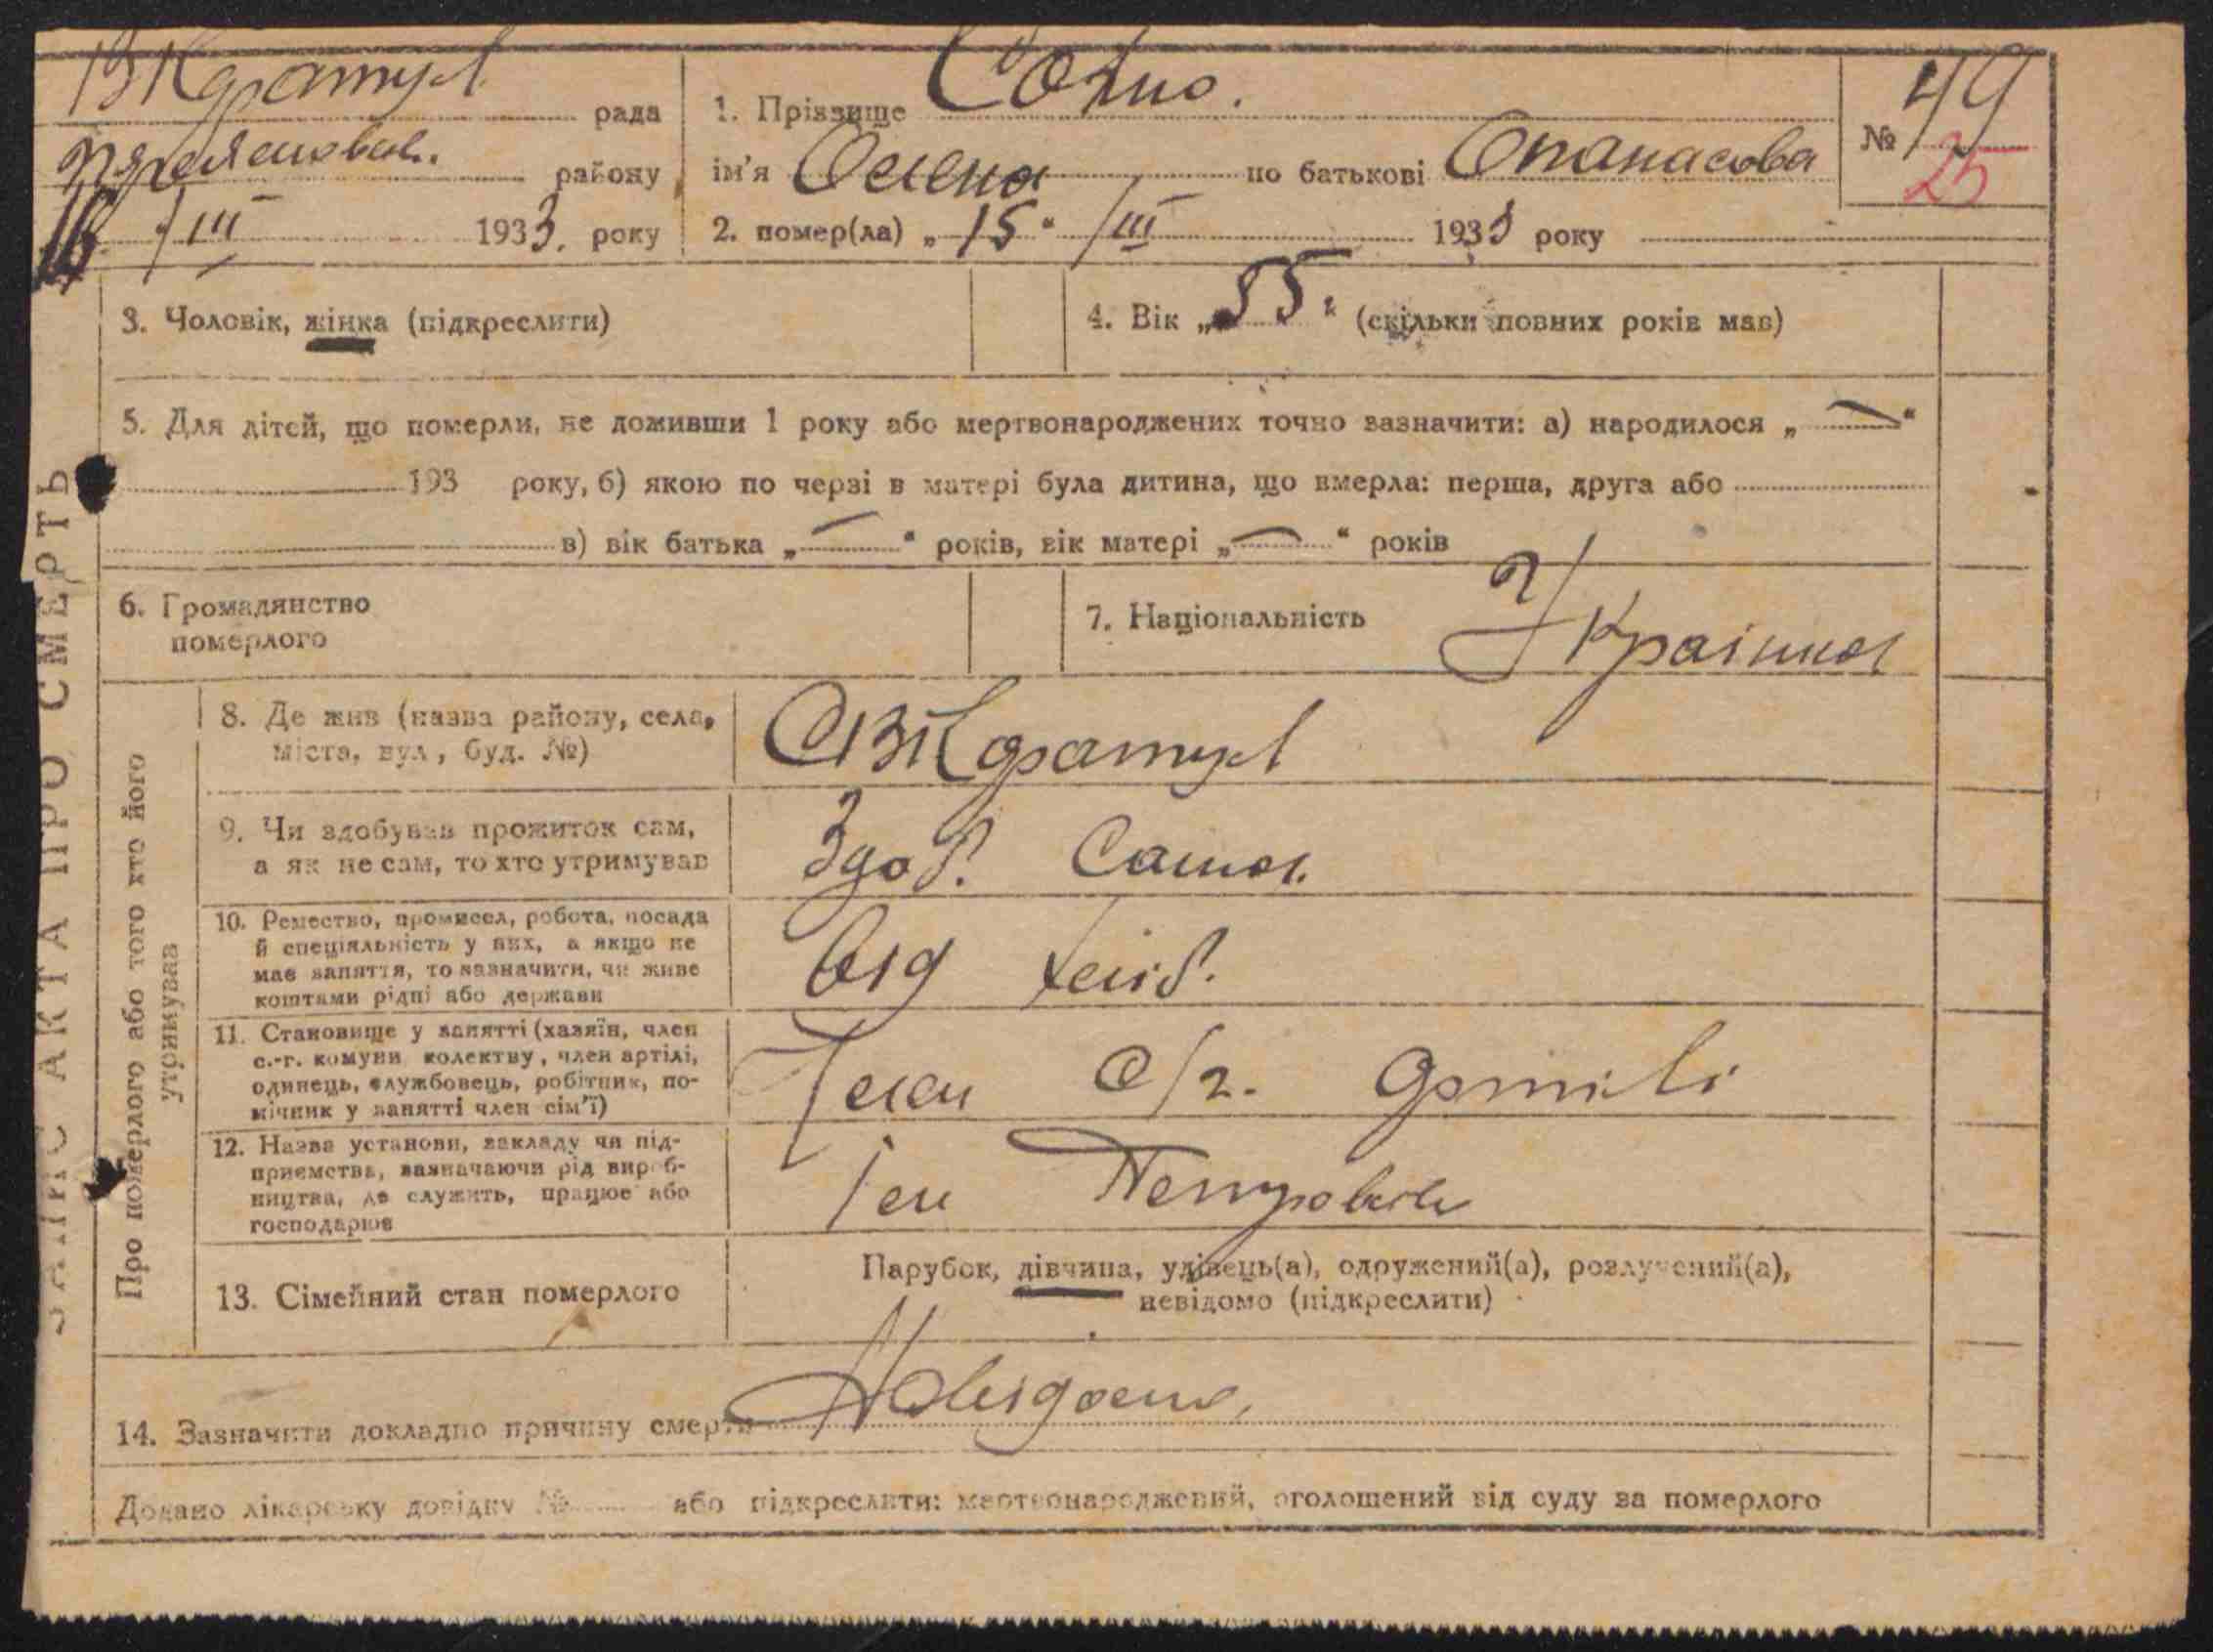 В Кратул рада
району
16 /III 1933. року
1. Прізвище Сохно.
ім'я Олена по батькові Опанасова
2. помер(ла) „15“ /III 1933 року
№ 49
25
3. Чоловік, жінка (підкреслити)
4. Вік „55“ (скільки повних років мав)
5. Для дітей, що померли, не доживши 1 року або мертвонароджених точно зазначити: а) народилося „ — “
193 року, б) якою по черзі в матері була дитина, що вмерла: перша, друга або
в) вік батька „ — “ років, вік матері „ — “ років
6. Громадянство
померлого
7. Національність Українка
ЗАПИС АКТА ПРО СМЕРТЬ
Про померлого або того хто його
утримував
8. Де жив (назва району, села,
міста, вул, буд. №)
С В Кратул
9. Чи здобував прожиток сам,
а як не сам, то хто утримував
Здоб. Сама.
10. Ремество, промисел, робота, посада
й спеціяльність у них, а якщо не
мав заняття, то зазначити, чи живе
коштами рідні або держави
від хліб.
11. Становище у занятті (хазяїн, член
с.-г. комуни колективу, член артілі,
одинець, службовець, робітник, по-
мічник у занятті член сім'ї)
Член С/г. Артілі
12. Назва установи, закладу чи під-
приємства, зазначаючи рід вироб-
ництва, де служить, працює або
господарює
Ім Петровськ
13. Сімейний стан померлого
Парубок, дівчина, удівець(а), одружений(а), розлучений(а),
невідомо (підкреслити)
14. Зазначити докладно причину смерти Невідомо.
Додано лікарську довідку № або підкреслити: мертвонароджений, оголошений від суду за померлого